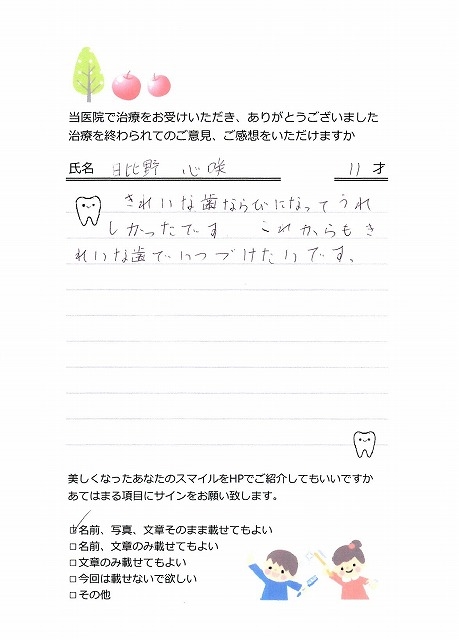 当医院で治療をお受けいただき、ありがとうございました
治療を終わられてのご意見、ご感想をいただけますか
氏名 日比野 心咲 11 才
きれいな歯ならびになってうれ
しかったです これからもき
れいな歯でいつづけたいです、
美しくなったあなたのスマイルをHPでご紹介してもいいですか
あてはまる項目にサインをお願い致します。
☑名前、写真、文章そのまま載せてもよい
□名前、文章のみ載せてもよい
□文章のみ載せてもよい
□今回は載せないで欲しい
□その他